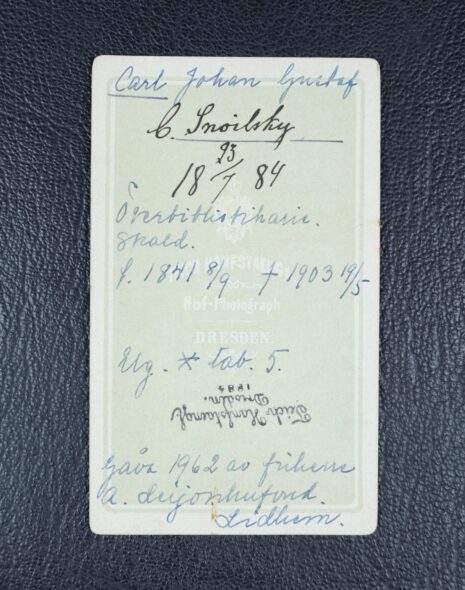 Carl Johan Gustaf
C. Snoilsky
18 23/7 84
Överbibliotikarie.
Skald.
f. 1841 8/9 † 1903 19/5
HANFSTAENGL
Hof-Photograph
DRESDEN.
Elg. * tab. 5.
Teich-Hanfstaengl
Dresden.
1884
Gåva 1962 av friherre
A. Leijonhufvud.
Lidhem.